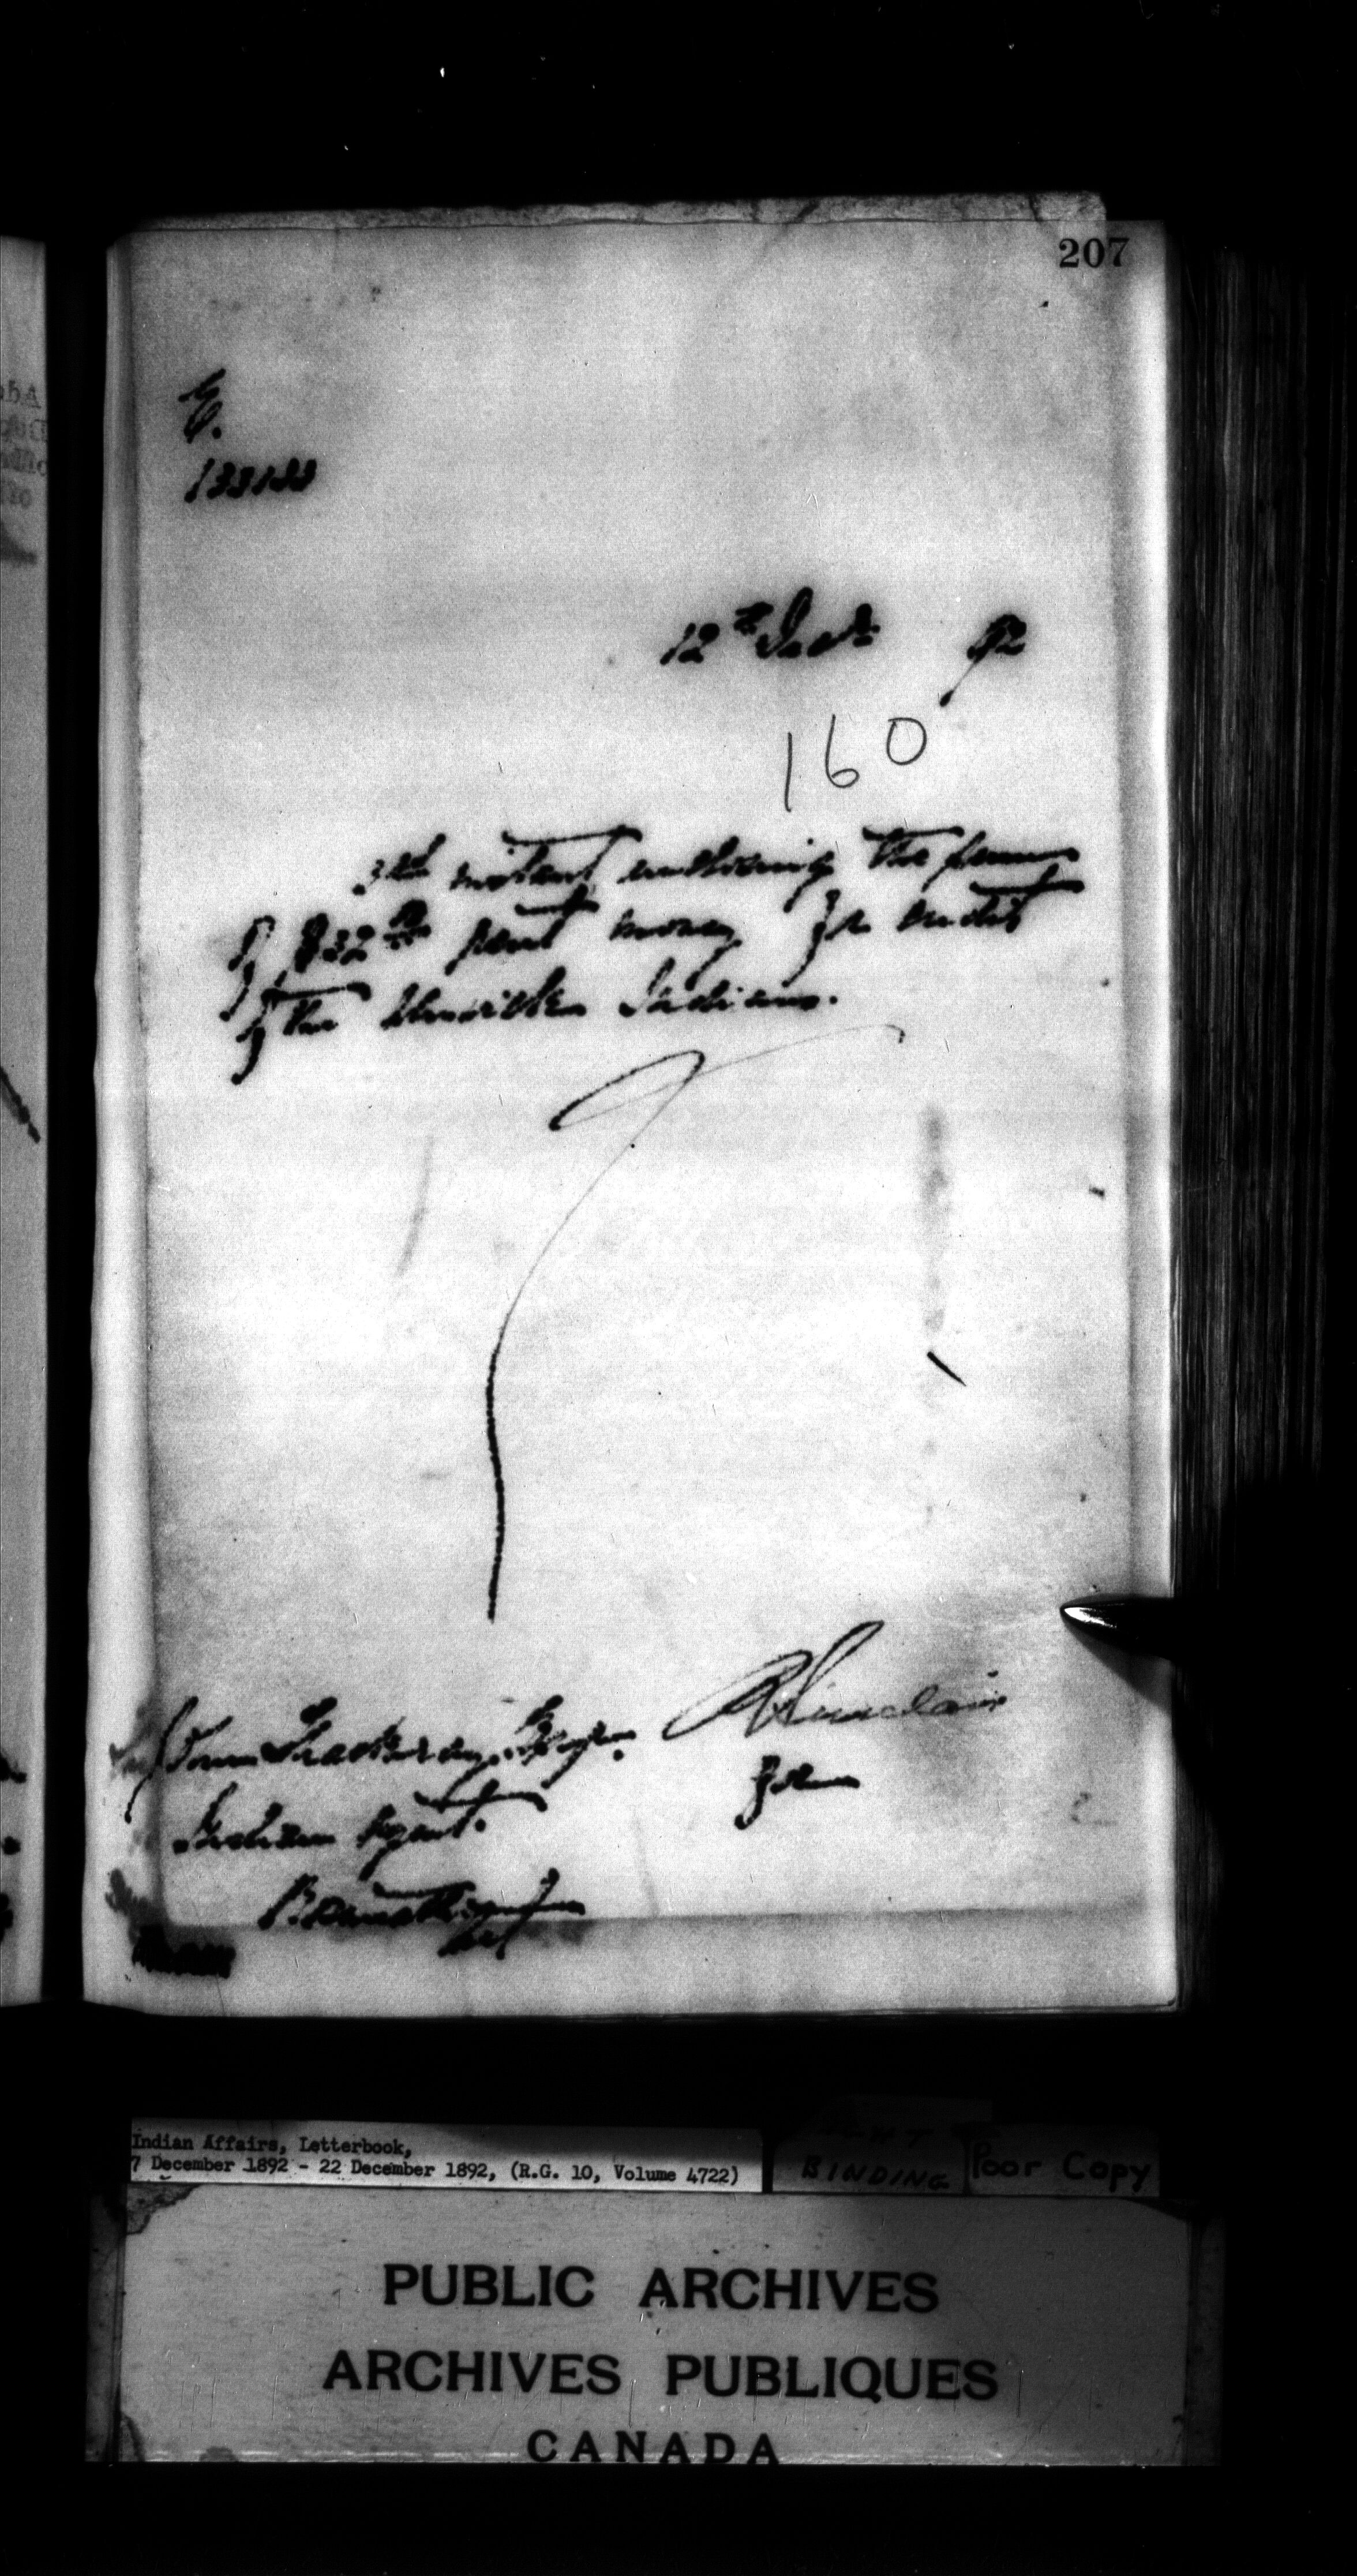 207
E.
133133
12th Decr. 92
160
instant enclosing the sum
of $32 rent money for credit
of the Indians.
R Sinclair
for
John Thackeray, Esqr.
Indian Agent.
Indian Affairs, Letterbook,
7 December 1892 - 22 December 1892, (R.G. 10, Volume 4722)
BINDING
Poor Copy
PUBLIC ARCHIVES
ARCHIVES PUBLIQUES
CANADA